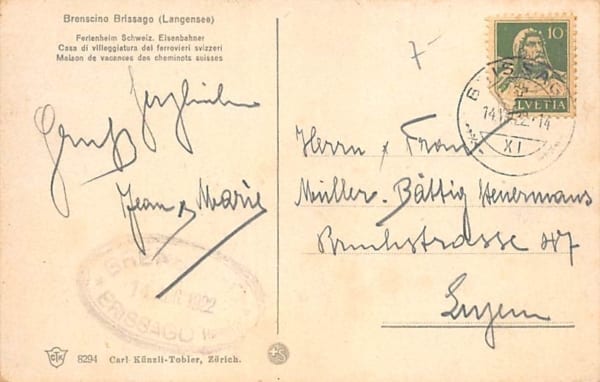 Brenscino Brissago (Langensee)
Ferienheim Schweiz. Eisenbahner
Casa di villeggiatura dei ferrovieri svizzeri
Maison de vacances des cheminots suisses
7-
10
HELVETIA
BRISSAGO
14 22-14
XI
Herzlichen
Gruß
Jean & Marie
Herrn & Frau
Müller-Bättig Heuermaus
Bruchstrasse 47
Luzern
14 1922
BRISSAGO
CTK 8294 Carl Künzli-Tobler, Zürich.